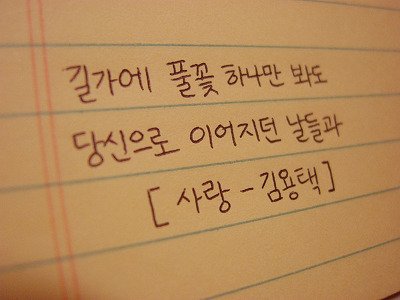 길가에 풀꽃 하나만 봐도
당신으로 이어지던 날들과
[ 사랑 - 김용택 ]